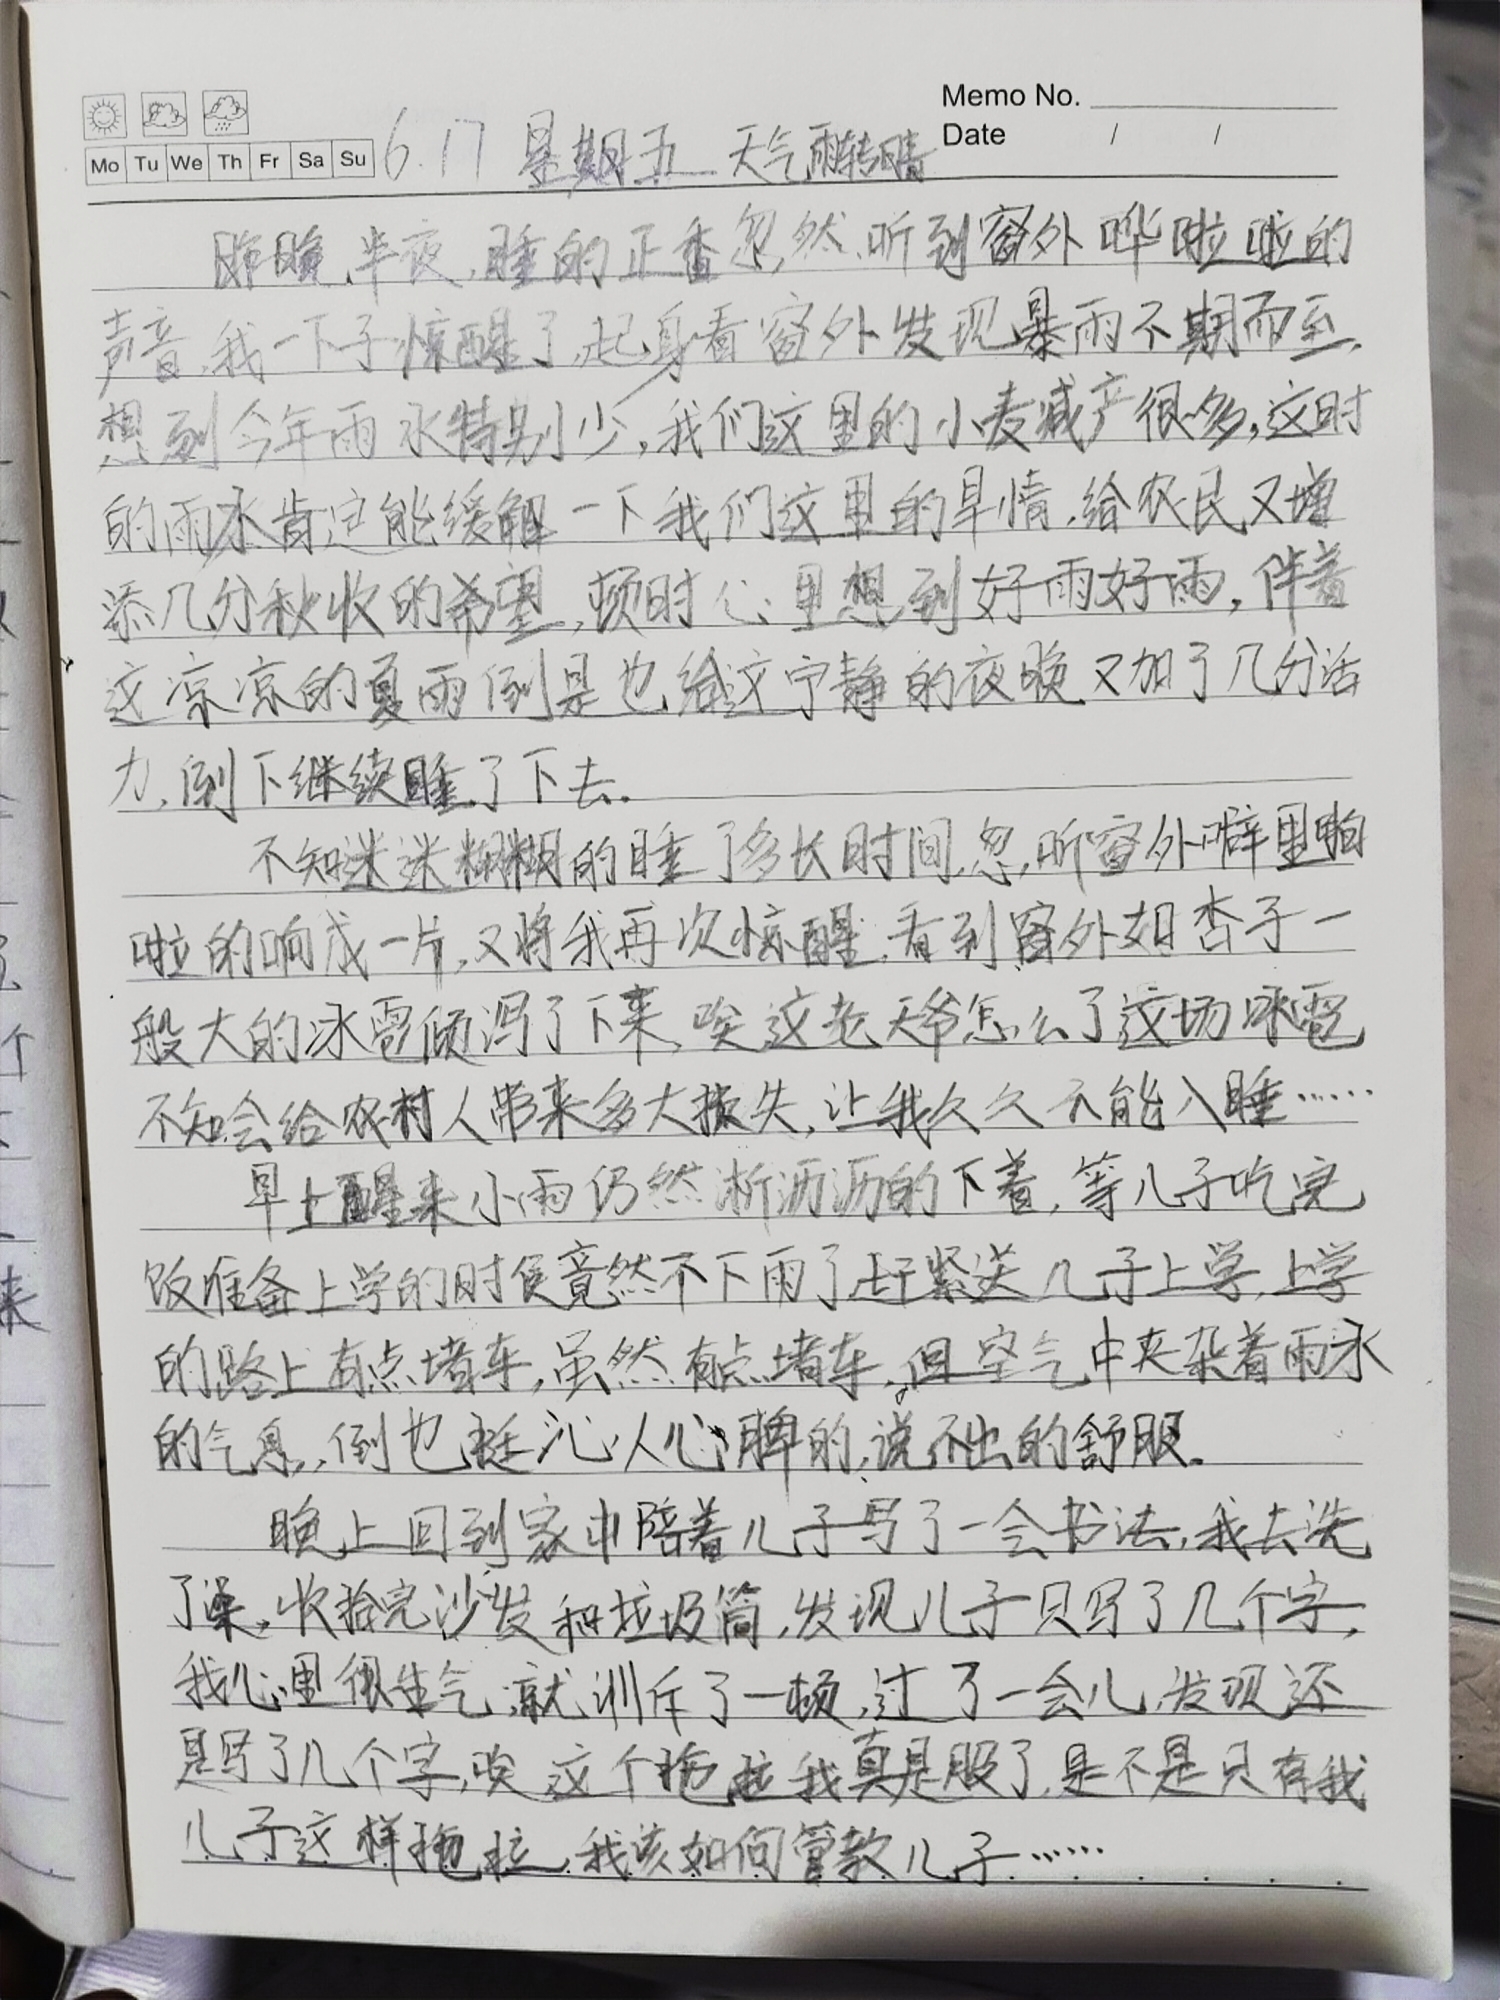 Memo No.
Date / /
Mo Tu We Th Fr Sa Su
6.17 星期五 天气雨转晴
昨晚半夜,睡的正香忽然听到窗外哗啦啦的
声音,我一下子惊醒了,起身看窗外发现暴雨不期而至,
想到今年雨水特别少,我们这里的小麦减产很多,这时
的雨水肯定能缓解一下我们这里的旱情,给农民又增
添几分秋收的希望,顿时心里想到好雨好雨,伴着
这凉凉的夏雨倒是也给这宁静的夜晚又加了几分活
力,倒下继续睡了下去.
不知迷迷糊糊的睡了多长时间,忽,听窗外噼里啪
啦的响成一片,又将我再次惊醒,看到窗外如杏子一
般大的冰雹倾泻了下来,唉这老天爷怎么了这场冰雹
不知会给农村人带来多大损失,让我久久不能入睡……
早上醒来小雨仍然淅沥沥的下着,等儿子吃完
饭准备上学的时侯竟然不下雨了赶紧送儿子上学,上学
的路上有点堵车,虽然有点堵车,但空气中夹杂着雨水
的气息,,倒也挺沁人心脾的,说不出的舒服.
晚上回到家中陪着儿子写了一会书法,我去洗
了澡,收拾完沙发和垃圾筒,发现儿子只写了几个字,
我心里很生气,就训斥了一顿,过了一会儿,发现还
是写了几个字,唉这个拖拉我真是服了,是不是只有我
儿子这样拖拉,我该如何管教儿子……